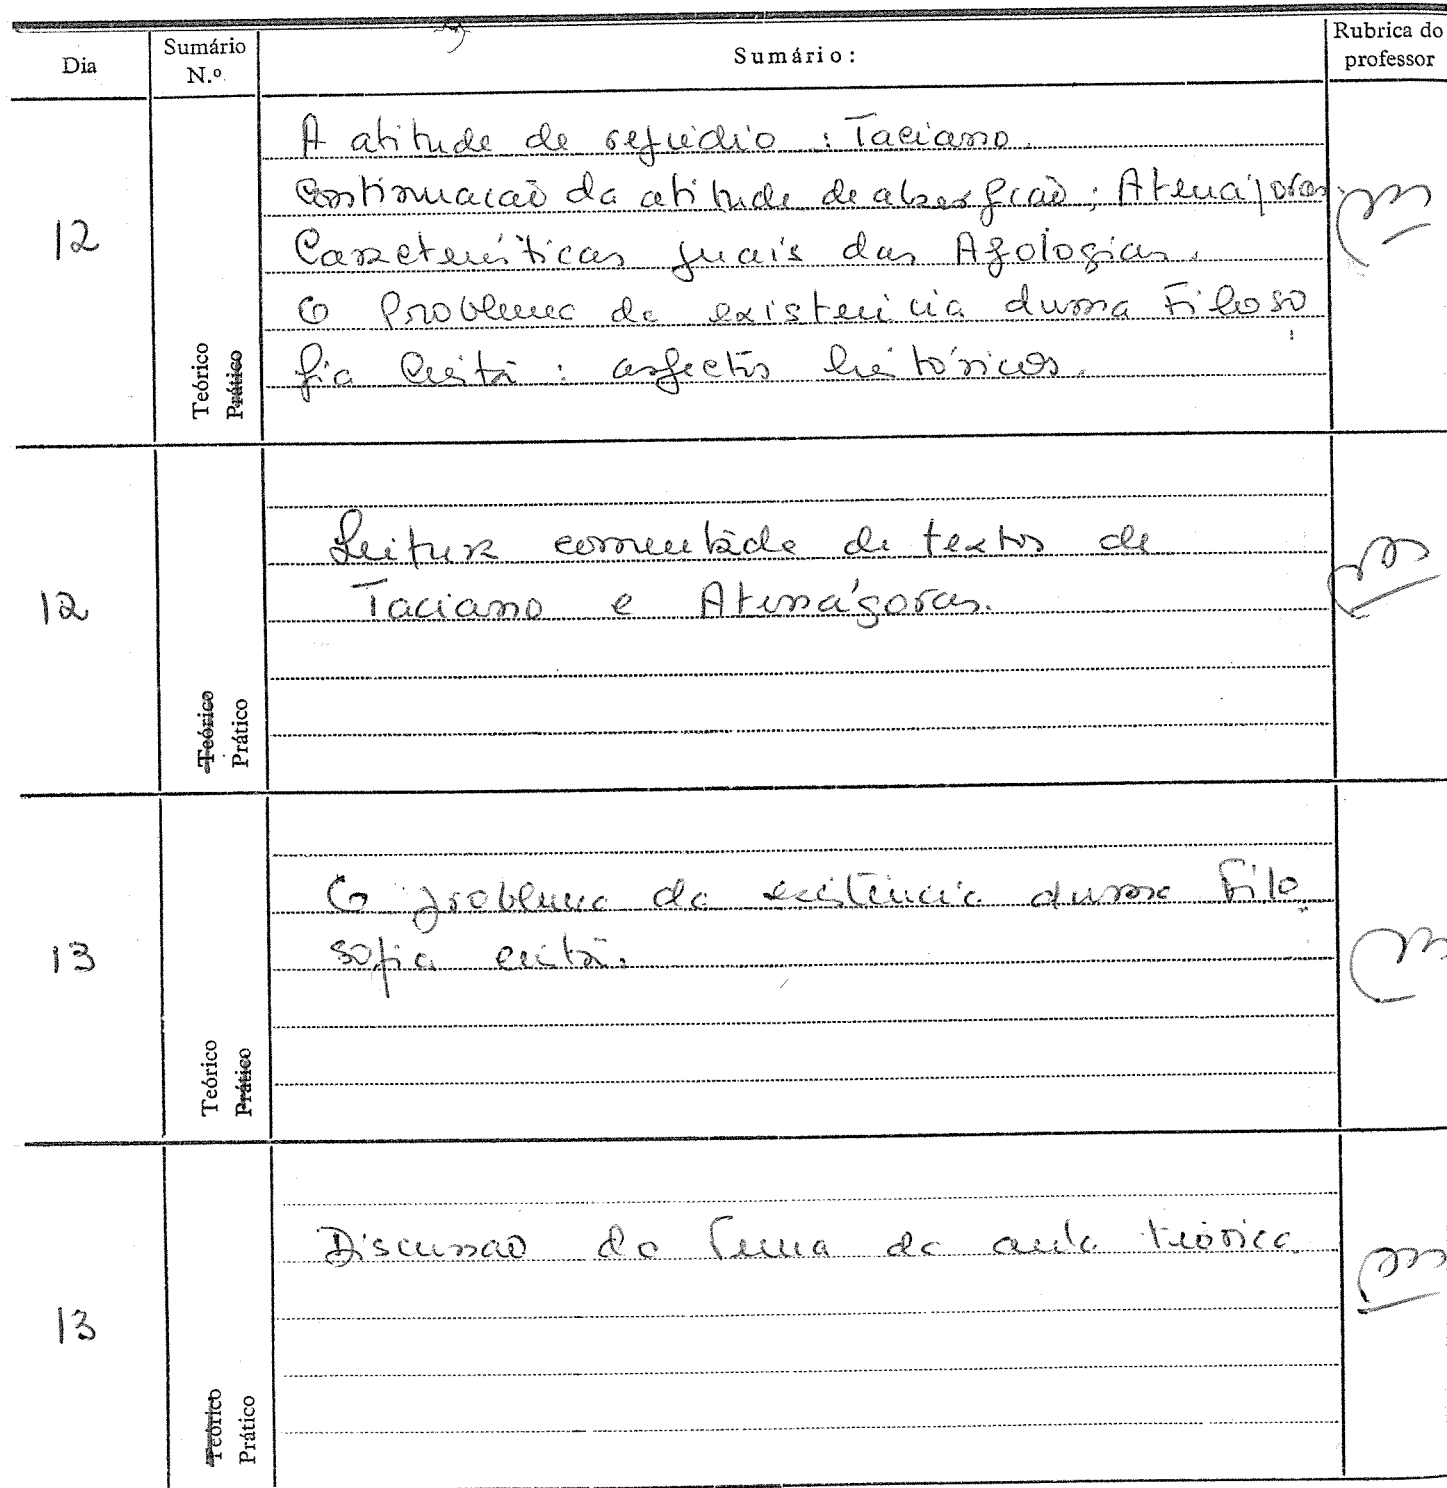 Dia
Sumário
N.º
Sumário:
Rubrica do
professor
12
Teórico
Prático
A atitude de repúdio : Taciano.
Continuação da atitude de absorpção ; Atenágoras.
Características gerais das Apologias.
O Problema da existência duma Filoso
fia Cristã : aspectos históricos.
12
Teórico
Prático
Leitura comentada de textos de
Taciano e Atenágoras.
13
Teórico
Prático
O problema da existência duma Filo
sofia cristã.
13
Teórico
Prático
Discussão do tema da aula teórica.